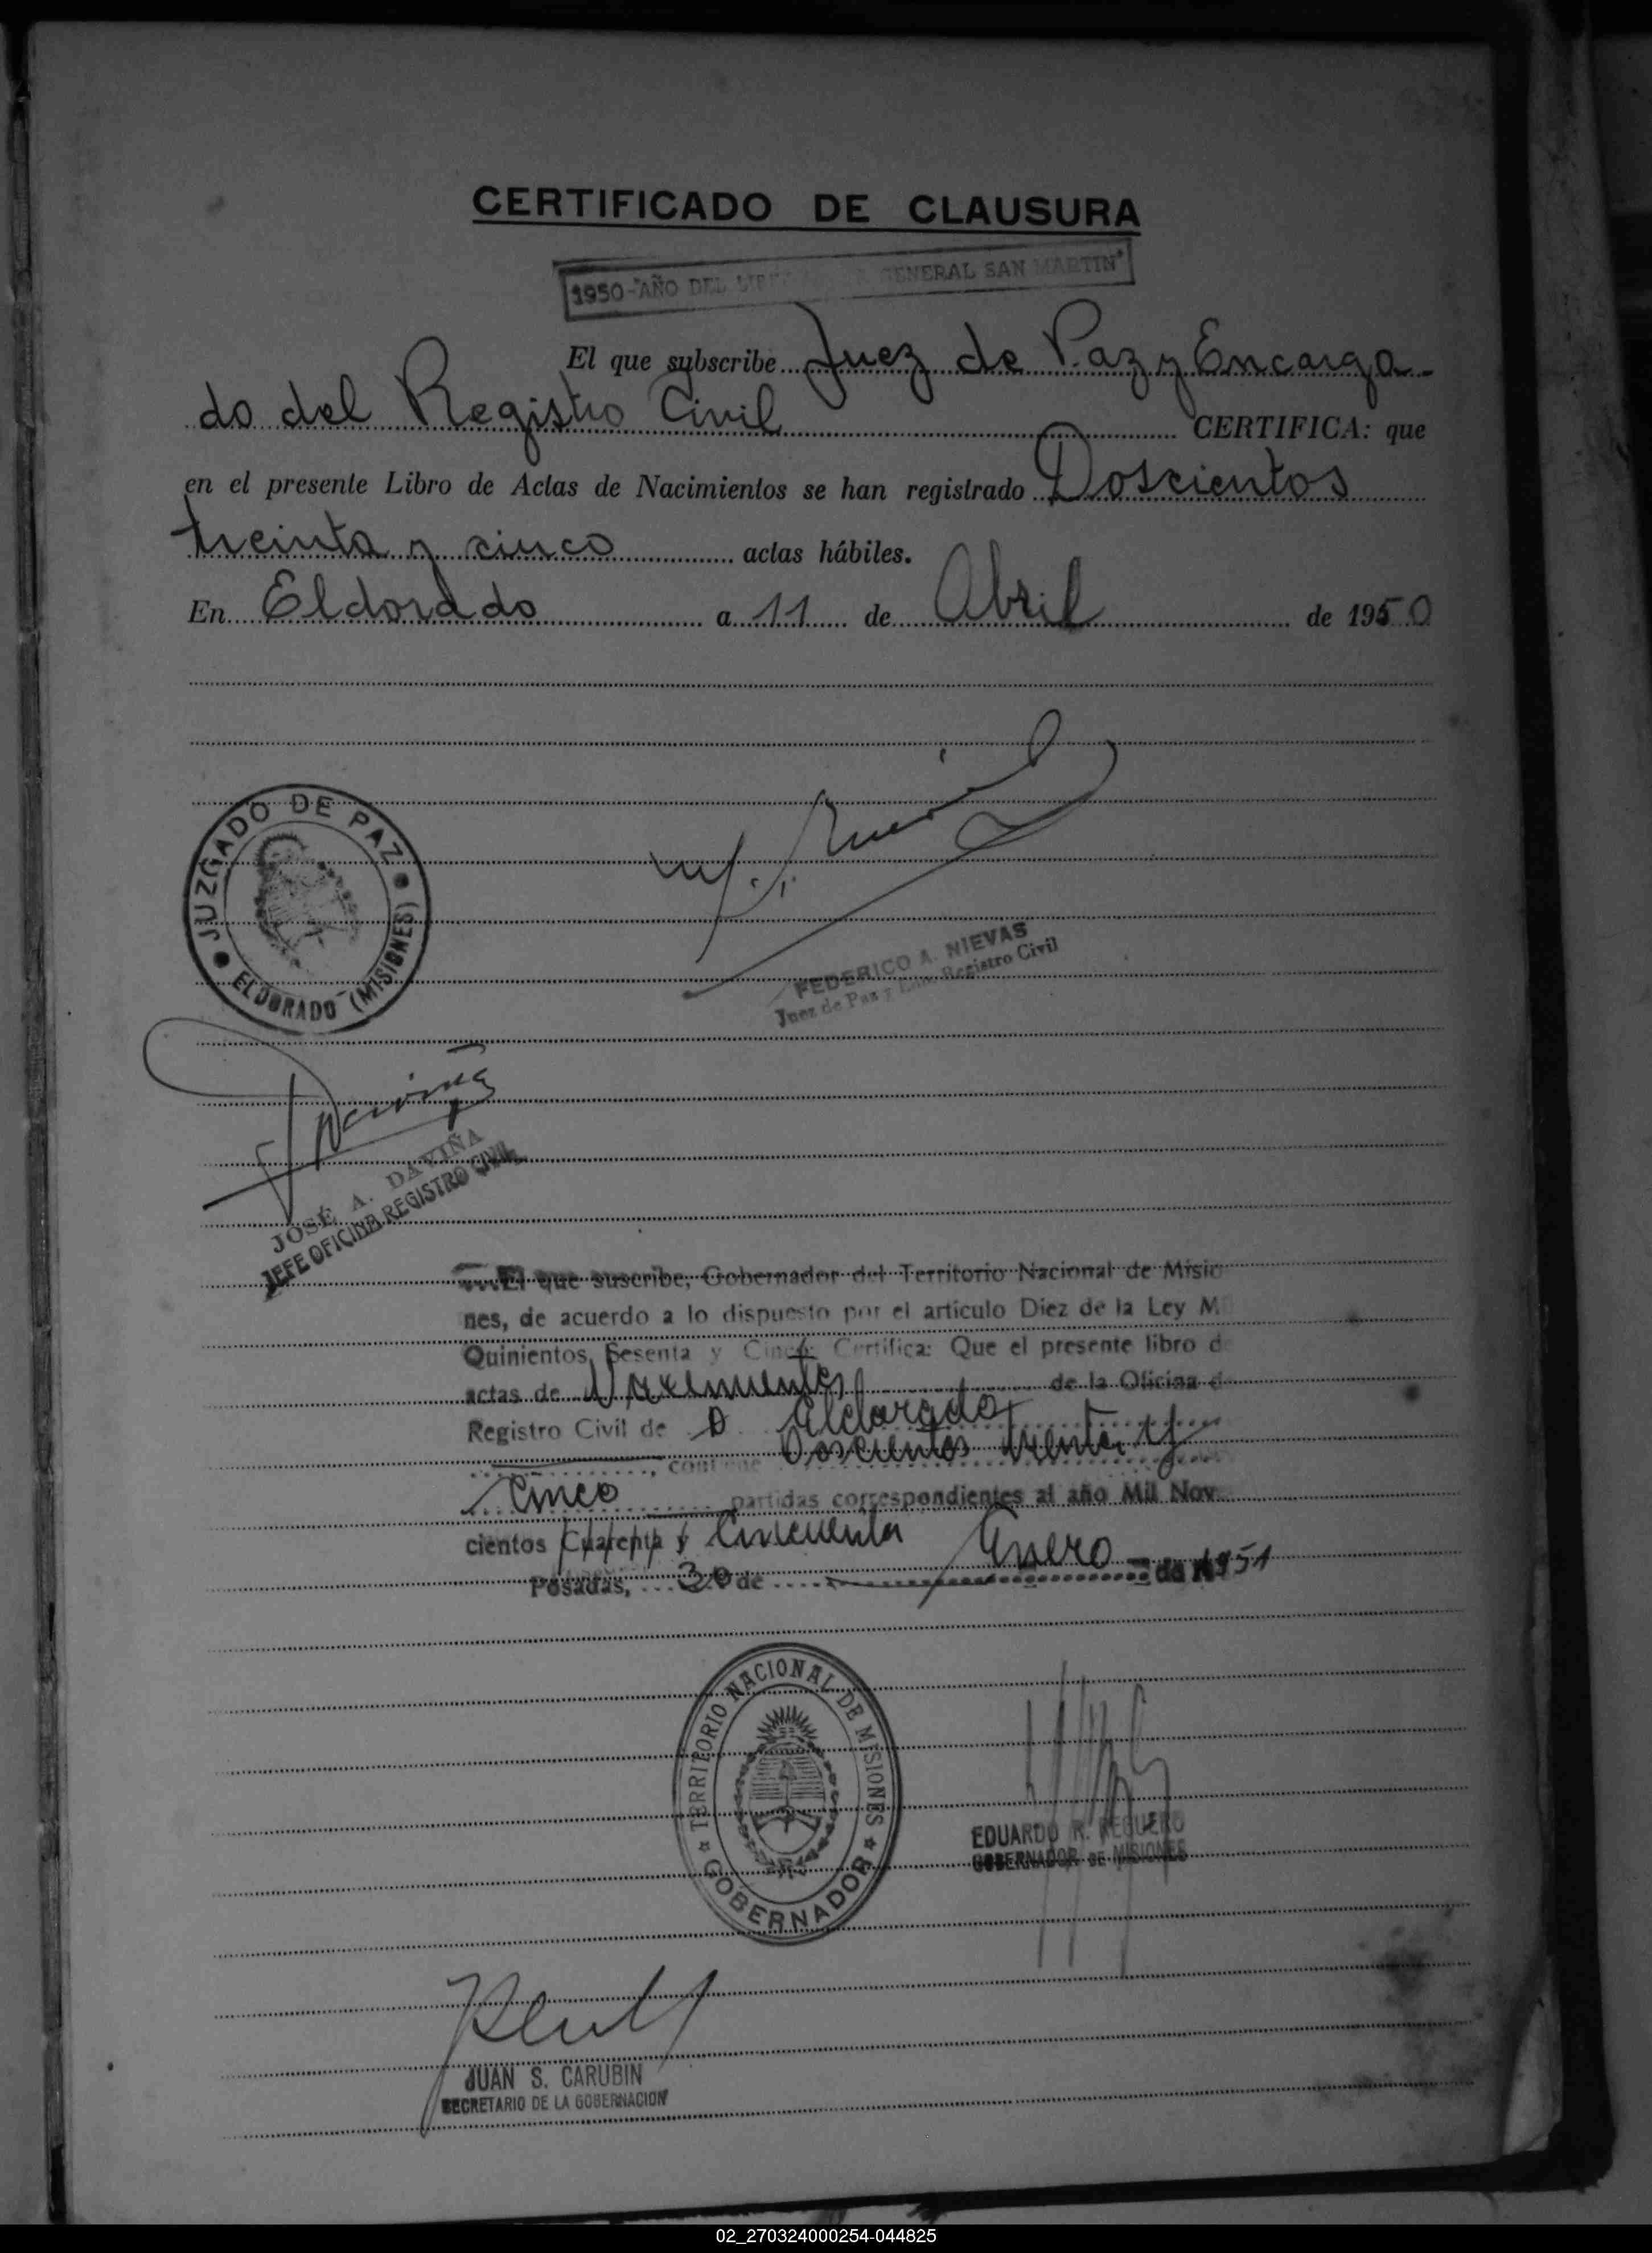 CERTIFICADO DE CLAUSURA
1950-"AÑO DEL GENERAL SAN MARTIN"
El que subscribe Juez de Paz y Encarga-
do del Registro Civil CERTIFICA: que
en el presente Libro de Actas de Nacimientos se han registrado Doscientos
treinta y cinco actas hábiles.
En Eldorado a 11 de Abril de 1950
JUZGADO DE PAZ
ELDORADO (MISIONES)
FEDERICO A. NIEVAS
Juez de Paz y Enc. Registro Civil
JOSÉ A. DAVIÑA
JEFE OFICINA REGISTRO CIVIL
El que suscribe, Gobernador del Territorio Nacional de Misio
nes, de acuerdo a lo dispuesto por el artículo Diez de la Ley M
Quinientos Sesenta y Cinco: Certifica: Que el presente libro d
actas de Nacimientos de la Oficina d
Registro Civil de Eldorado
contiene Doscientos treinta y
Cinco partidas correspondientes al año Mil Nov
cientos Cuarenta y Cincuenta
Posadas, 30 de Enero de 1951
TERRITORIO NACIONAL DE MISIONES
GOBERNADOR
EDUARDO R. REGUERO
GOBERNADOR DE MISIONES
JUAN S. CARUBIN
SECRETARIO DE LA GOBERNACION
02_270324000254-044825